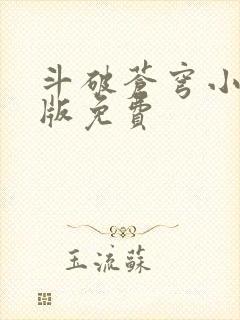 斗破苍穹小
版免費
玉流蘇